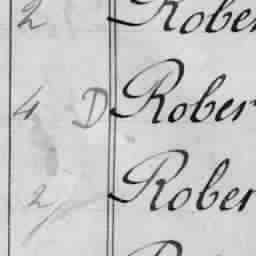 2 Rober
4 D Rober
2 Rober